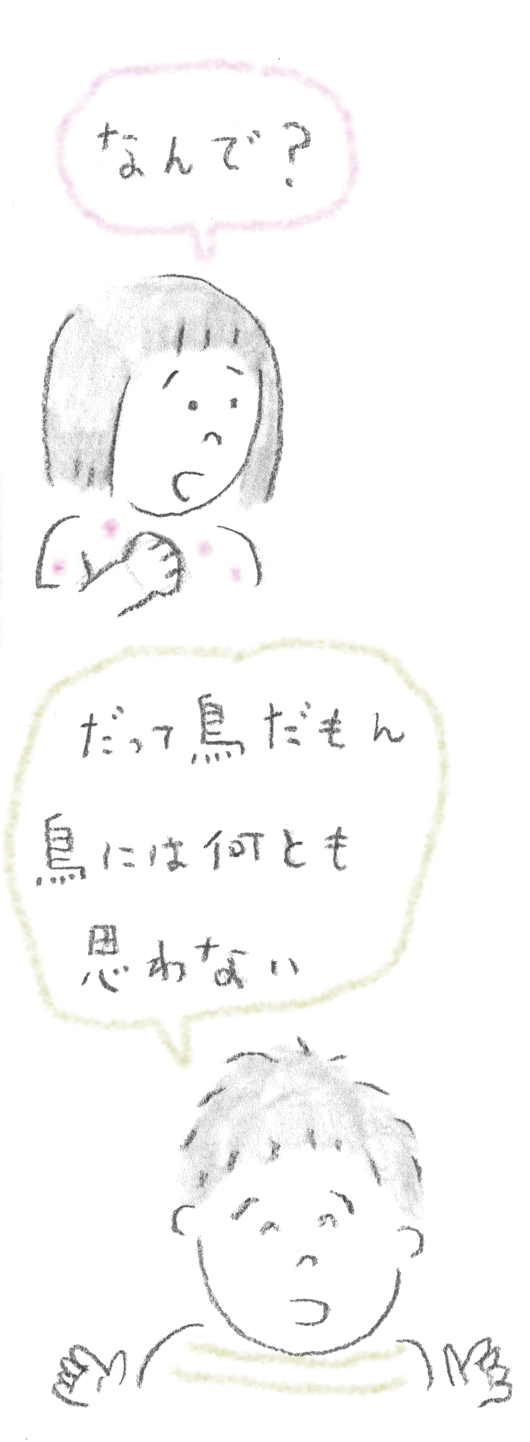 なんで?
だって鳥だもん
鳥には何とも
思わない